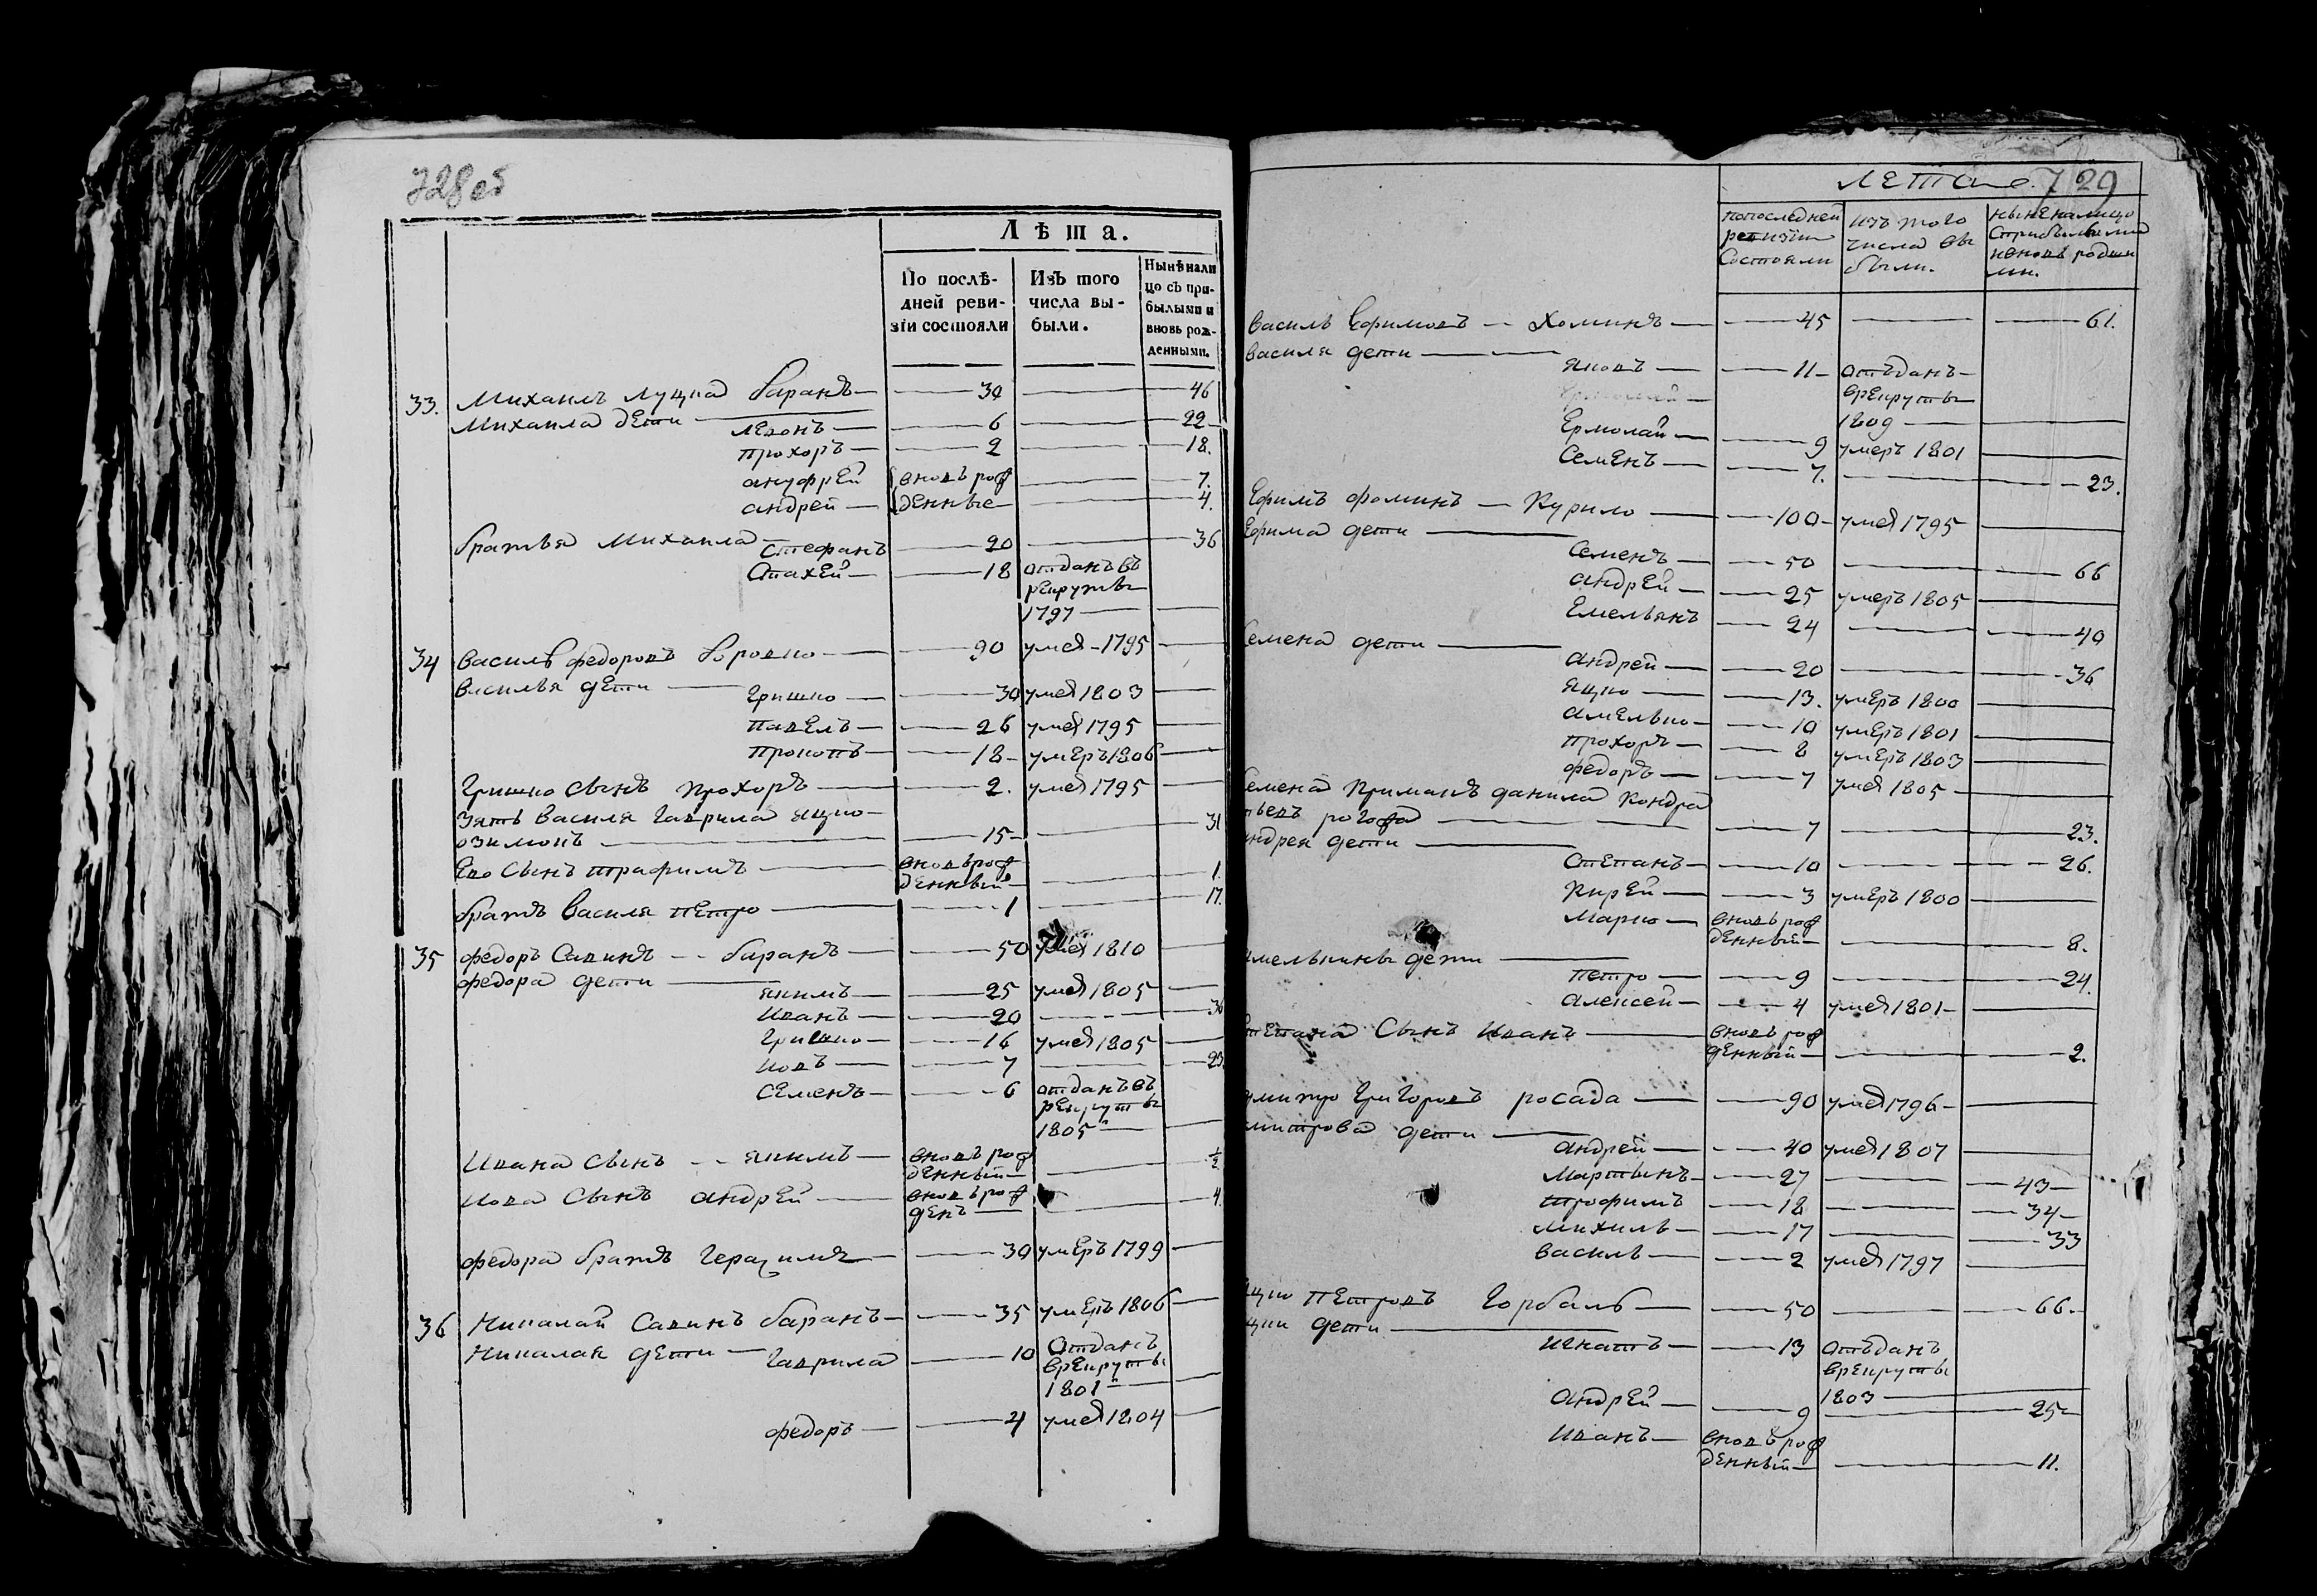 728об
Лѣта.
По послѣ-
дней реви-
зіи состояли
Изъ того
числа вы-
были.
Нынѣ нали
цо съ при-
былыми и
вновь рож-
денными.
33. Михаилъ Луциа баранъ — 30 — 46
Михаила дети — Леонъ — 6 — 22
прохоръ — 2 — 18.
ануфрей вновь рож — 7.
андрей — денные — 4.
братья Михаила — Стефанъ — 20 — 36
Остахей — 18 отданъ въ
рекруты
1797 —
34 Василь федоровъ — 90 умер - 1795 —
Василья дети — Гришко — 30 умер 1803 —
павелъ — 26 умер 1795
прокопъ — 18 - умеръ 1806 —
Гришко сынъ прохоръ — 2. умер 1795 —
зять Василя Гаврила яцко —
— 15 — 31
Ево сынъ трафимъ — вновь рож
денный — 1.
братъ Василя петро — 1 — 17.
35 федоръ Савинъ - - баранъ — 50 умер 1810 —
федора дети — якимъ — 25 умер 1805 —
Иванъ — 20 — 36
Гришко — 16 умер 1805 —
Иовъ — 7 — 23.
Семенъ — 6 отданъ въ
рекруты
1805 —
Ивана сынъ - - якимъ — вновь рож
денный — ½
Иова сынъ андрей — вновь рож
денъ — 4.
федора братъ Герасимъ — 30 умеръ 1799 —
36 Николай Савинъ баранъ — 35 умеръ 1806 —
Николая дети — Гаврила — 10 Отданъ
в рекруты
1801 —
федоръ — 4 умер 1804 —
Лета. 729
по последней
ревизии
Состояли
изъ того
числа вы
были.
ныне налицо
с прибылыми
и вновь рожден
ми.
Василь Ефимовъ — Хоминъ — 45 — 61.
Василя дети — яковъ — 11 - отъданъ -
в рекруты
1809 —
Ермолай — 9 умеръ 1801 —
Семенъ — 7. — 23.
Ефимъ фоминъ — Курило — 100 - умер 1795 —
Ефима дети — Семенъ — 50 — 66
андрей — 25 умеръ 1805 —
Емельянъ — 24 — 40
Семена дети — андрей — 20 — 36
яцко — 13. умеръ 1800 —
амелько — 10 умеръ 1801 —
прохоръ — 8 умеръ 1803 —
федоръ — 7 умер 1805 —
Семена примакъ данила Кондра
тьевъ — 7 — 23.
андрея дети — Степанъ — 10 — 26.
Кирей — 3 умеръ 1800 —
Марко — вновь рож
денный — 8.
амелькины дети — петро — 9 — 24.
алексей — 4 умер 1801 —
Степана сынъ Иванъ — вновь рож
денный — 2.
Дмитро Григоровъ росада — 90 умер 1796 —
Дмитрова дети — андрей — 40 умер 1807 —
Мартынъ — 27 — 43 —
трофимъ — 18 — 34 —
михиль — 17 — 33
василь — 2 умер 1797 —
яцко петровъ Горбаль — 50 — 66. —
яцки дети — игнатъ — 13 отъданъ
в рекруты
1803 —
андрей — 9 — 25 —
Иванъ — вновь рож
денный — 11.